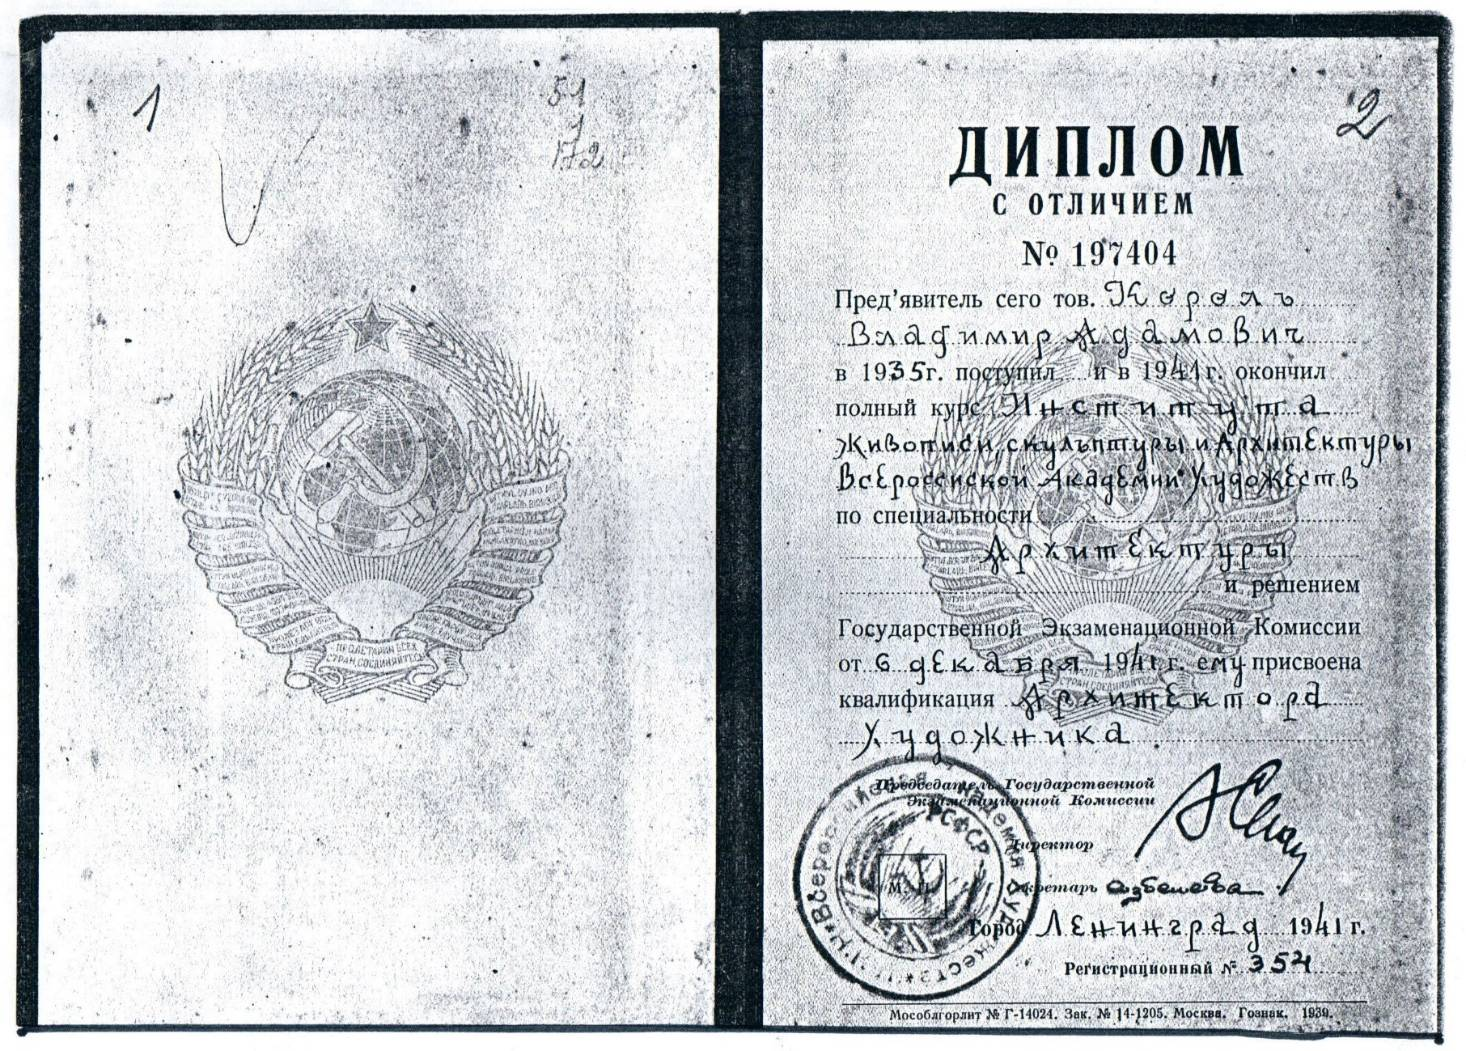 1
51
1
172
ПРОЛЕТАРИИ ВСЕХ
СТРАН, СОЕДИНЯЙТЕСЬ
2
ДИПЛОМ
С ОТЛИЧИЕМ
№ 197404
Пред'явитель сего тов. Король
Владимир Адамович
в 1935 г. поступил и в 1941 г. окончил
полный курс Института
живописи, скульптуры и Архитектуры
Всероссийской Академии Художеств
по специальности
Архитектуры
и решением
Государственной Экзаменационной Комиссии
от 6 декабря 1941 г. ему присвоена
квалификация Архитектора
Художника
Председатель Государственной
Экзаменационной Комиссии
Директор
Секретарь
Всероссийская Академия Художеств
РСФСР
М. П.
Город Ленинград 1941 г.
Регистрационный № 354
Мособлгорлит № Г-14024. Зак. № 14-1205. Москва. Гознак. 1939.